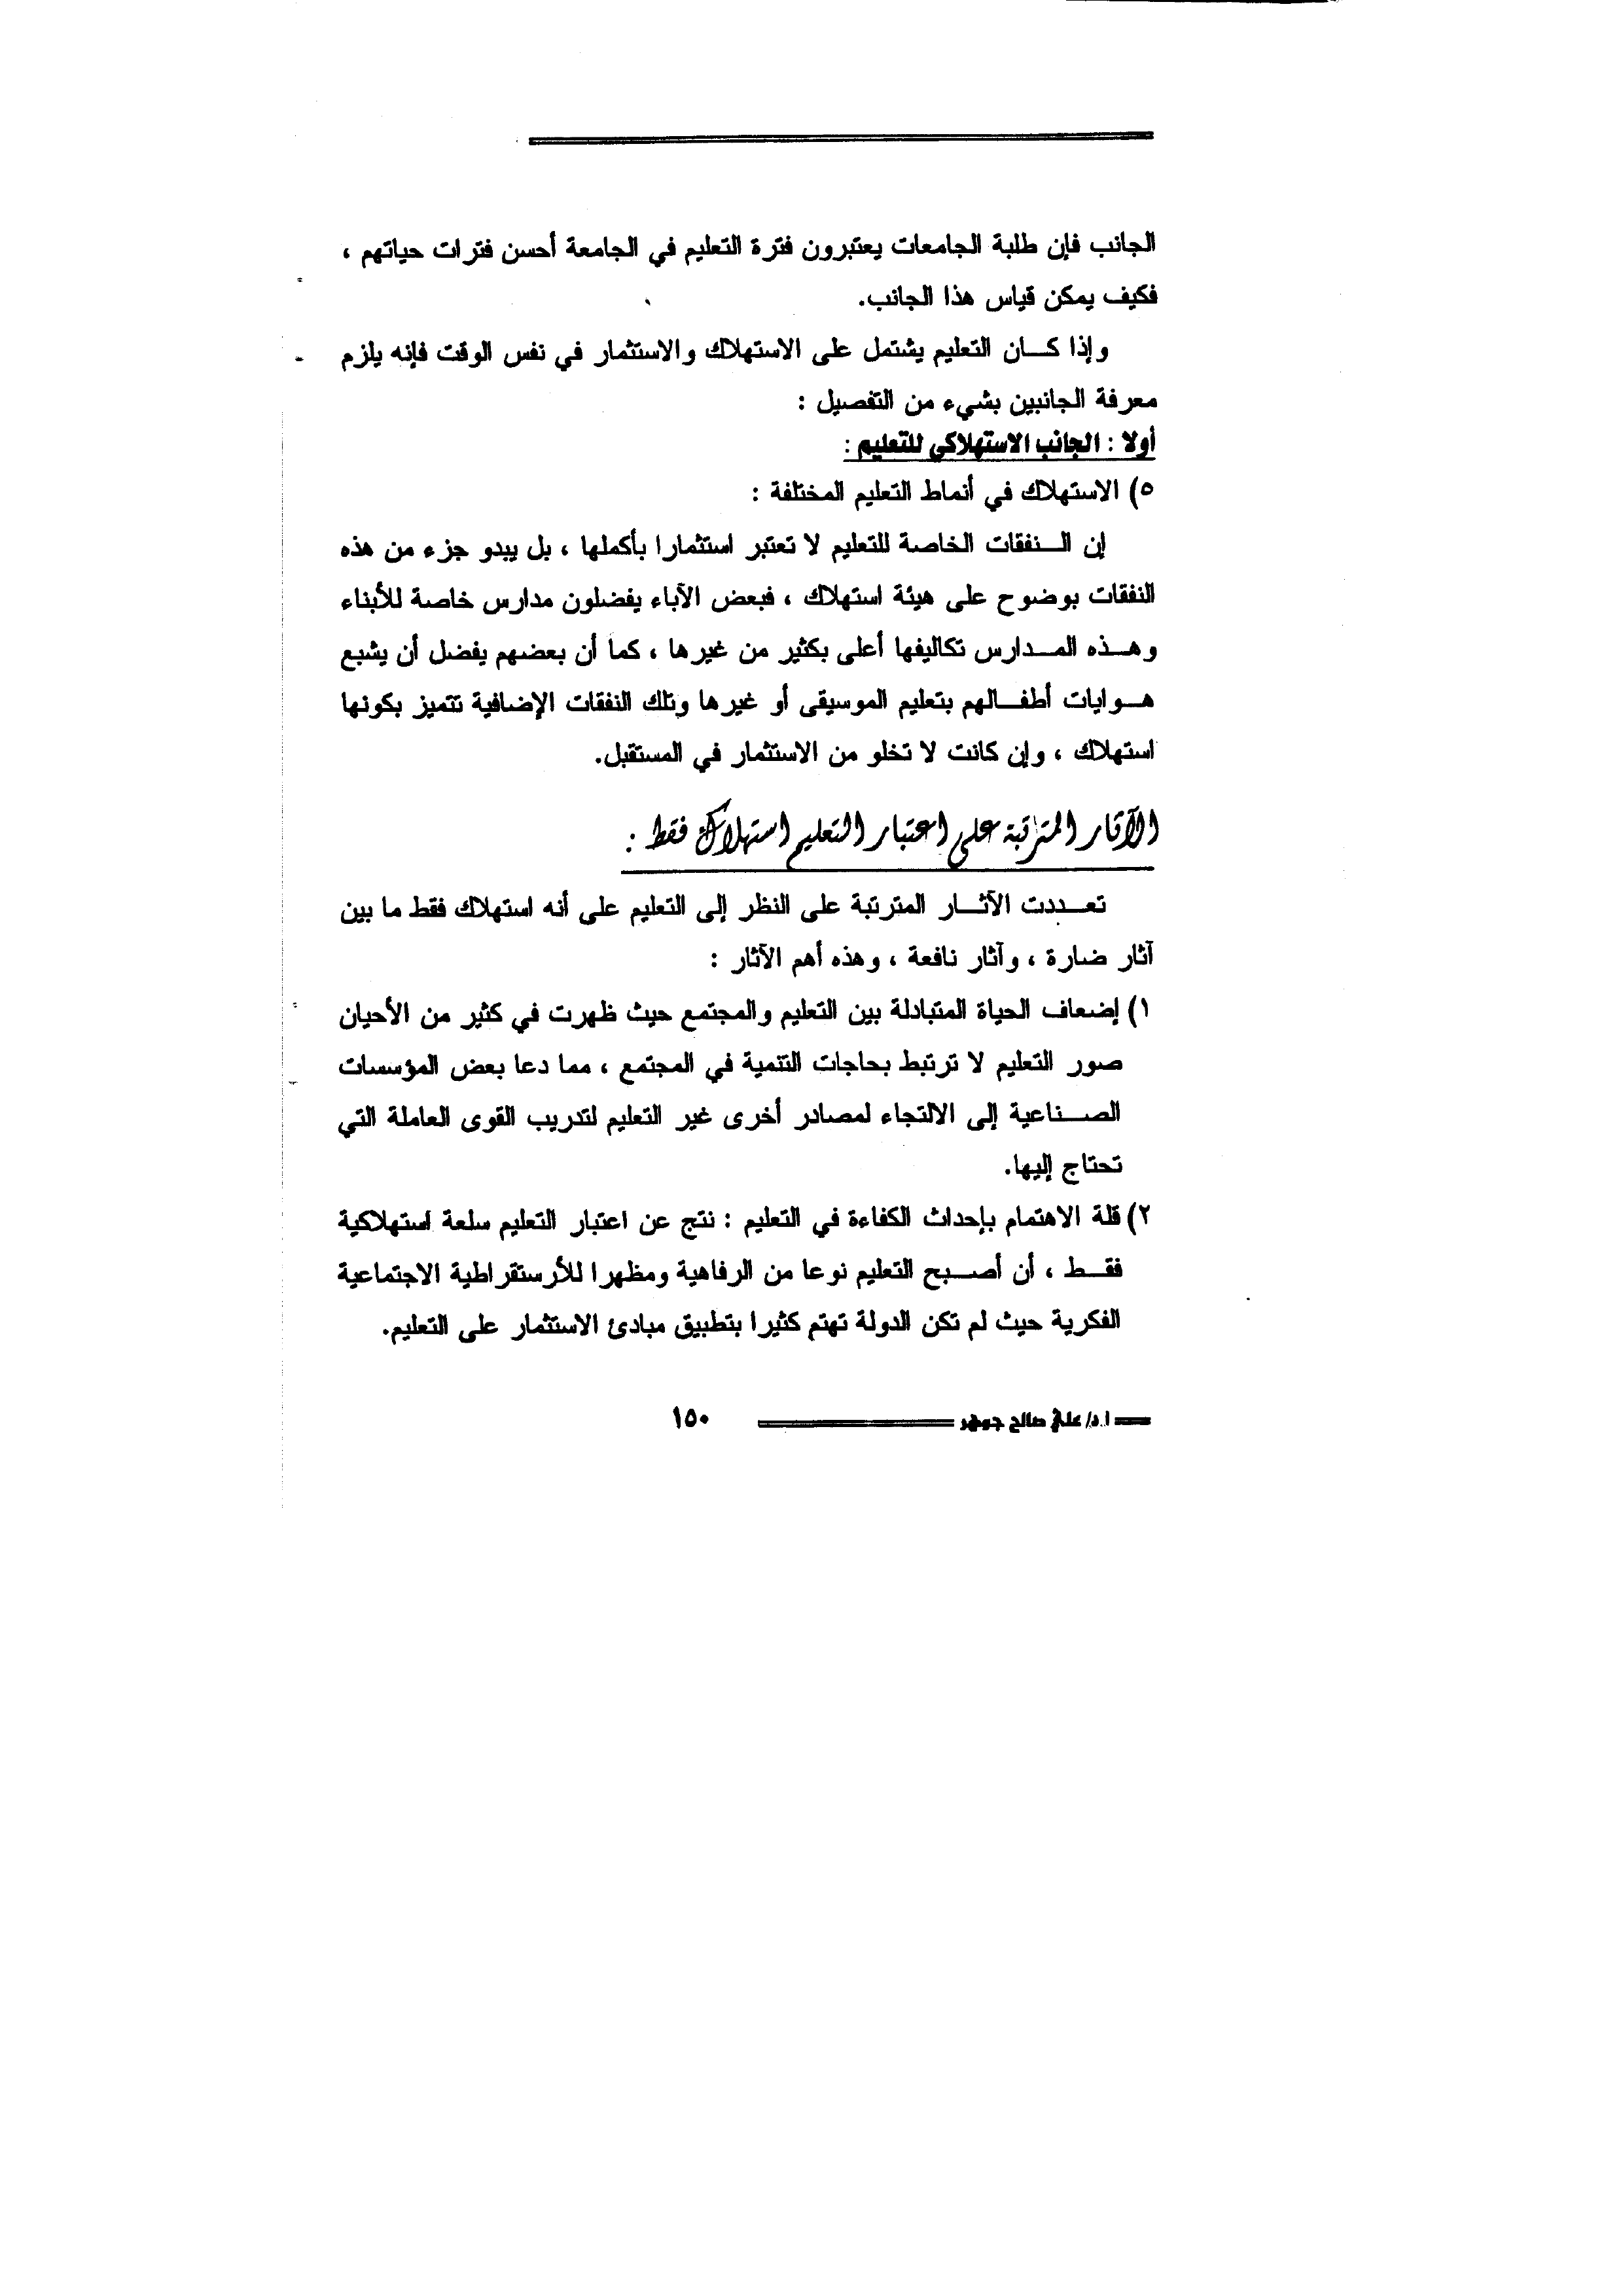 الجانب فإن طلبة الجامعات يعتبرون فترة التعليم في الجامعة أحسن فترات حياتهم ،
فكيف يمكن قياس هذا الجانب.
وإذا كان التعليم يشتمل على الاستهلاك والاستثمار في نفس الوقت فإنه يلزم
معرفة الجانبين بشيء من التفصيل :
أولا : الجانب الاستهلاكي للتعليم :
٥) الاستهلاك في أنماط التعليم المختلفة :
إن النفقات الخاصة للتعليم لا تعتبر استثمارا بأكملها ، بل يبدو جزء من هذه
النفقات بوضوح على هيئة استهلاك ، فبعض الآباء يفضلون مدارس خاصة للأبناء
وهذه المدارس تكاليفها أعلى بكثير من غيرها ، كما أن بعضهم يفضل أن يشبع
هوايات أطفالهم بتعليم الموسيقى أو غيرها وتلك النفقات الإضافية تتميز بكونها
استهلاك ، وإن كانت لا تخلو من الاستثمار في المستقبل.
الآثار المترتبة على اعتبار التعليم استهلاك فقط :
تعددت الآثار المترتبة على النظر إلى التعليم على أنه استهلاك فقط ما بين
آثار ضارة ، وآثار نافعة ، وهذه أهم الآثار :
١) إضعاف الحياة المتبادلة بين التعليم والمجتمع حيث ظهرت في كثير من الأحيان
صور التعليم لا ترتبط بحاجات التنمية في المجتمع ، مما دعا بعض المؤسسات
الصناعية إلى الالتجاء لمصادر أخرى غير التعليم لتدريب القوى العاملة التي
تحتاج إليها.
٢) قلة الاهتمام بإحداث الكفاءة في التعليم : نتج عن اعتبار التعليم سلعة استهلاكية
فقط ، أن أصبح التعليم نوعا من الرفاهية ومظهرا للأرستقراطية الاجتماعية
الفكرية حيث لم تكن الدولة تهتم كثيرا بتطبيق مبادئ الاستثمار على التعليم.
ا.د/ علي صالح جوهر ١٥٠